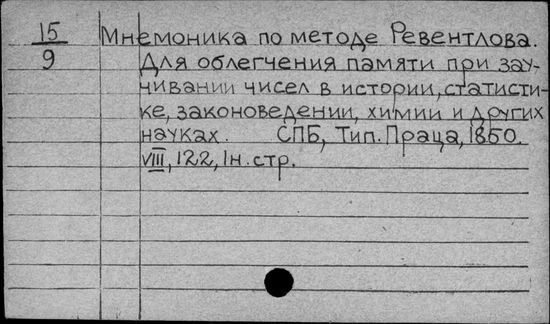 15
9
Мнемоника по методе Ревентлова.
Для облегчения памяти при зау-
чивании чисел в истории, статисти-
ке, законоведении, химии и других
науках. СПБ, Тип. Праца, 1850.
VIII, 122, 1н. стр.